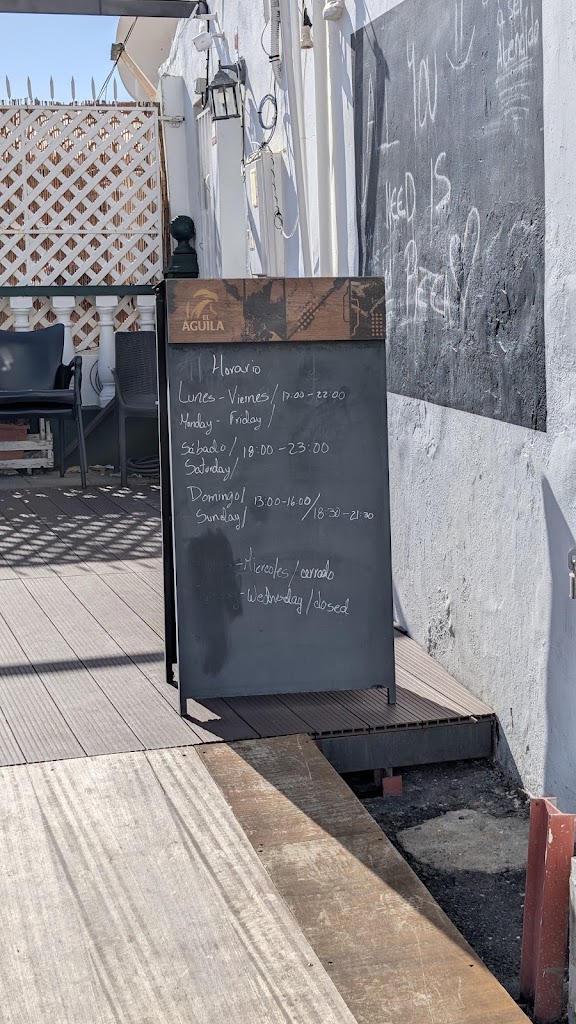 a ser
Atendido
YOU
NEED IS
PIZZA
EL
AGUILA
Horario
Lunes - Viernes / 17:00 - 22:00
Monday - Friday /
Sábado / 18:00 - 23:00
Saturday /
Domingo / 13:00-16:00 / 18:30-21:30
Sunday /
- Miercoles / cerrado
- Wednesday / closed